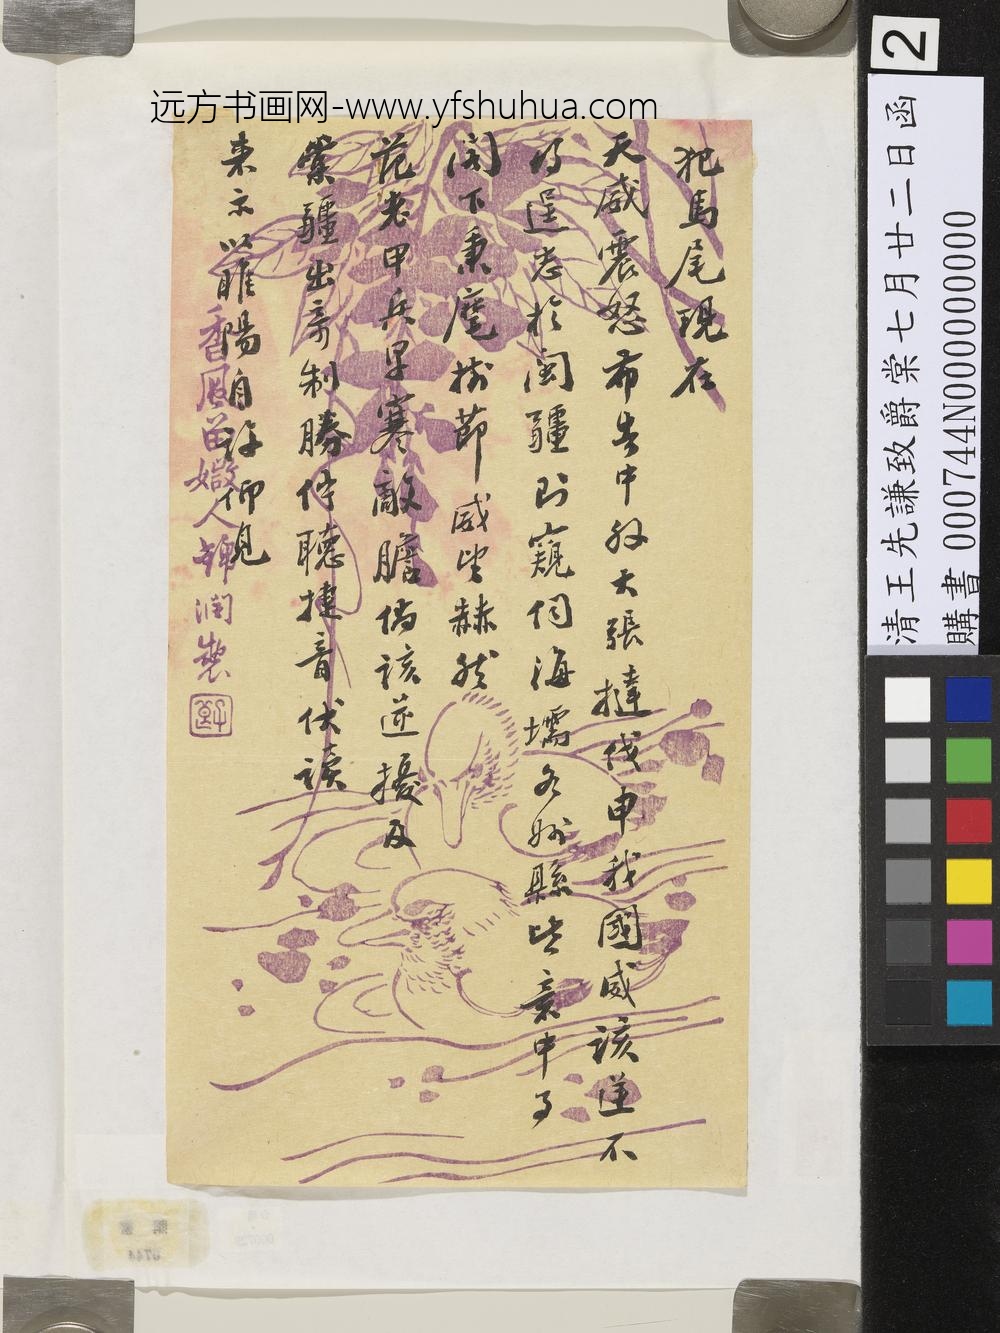 远方书画网-www.yfshuhua.com
犯馬尾現在
天威震怒布告中外大張撻伐申我國威該逆不
得逞志於閩疆則窺伺海壖各州縣皆意中事
閣下秉麾擁節威望赫然
范老甲兵早寒敵膽倘該逆擾及
棠疆出奇制勝佇聽捷音伏讀
來示以睢陽自許仰見
香風
人
潤製
2
清王先謙致爵棠七月廿二日函
購書 000744N000000000